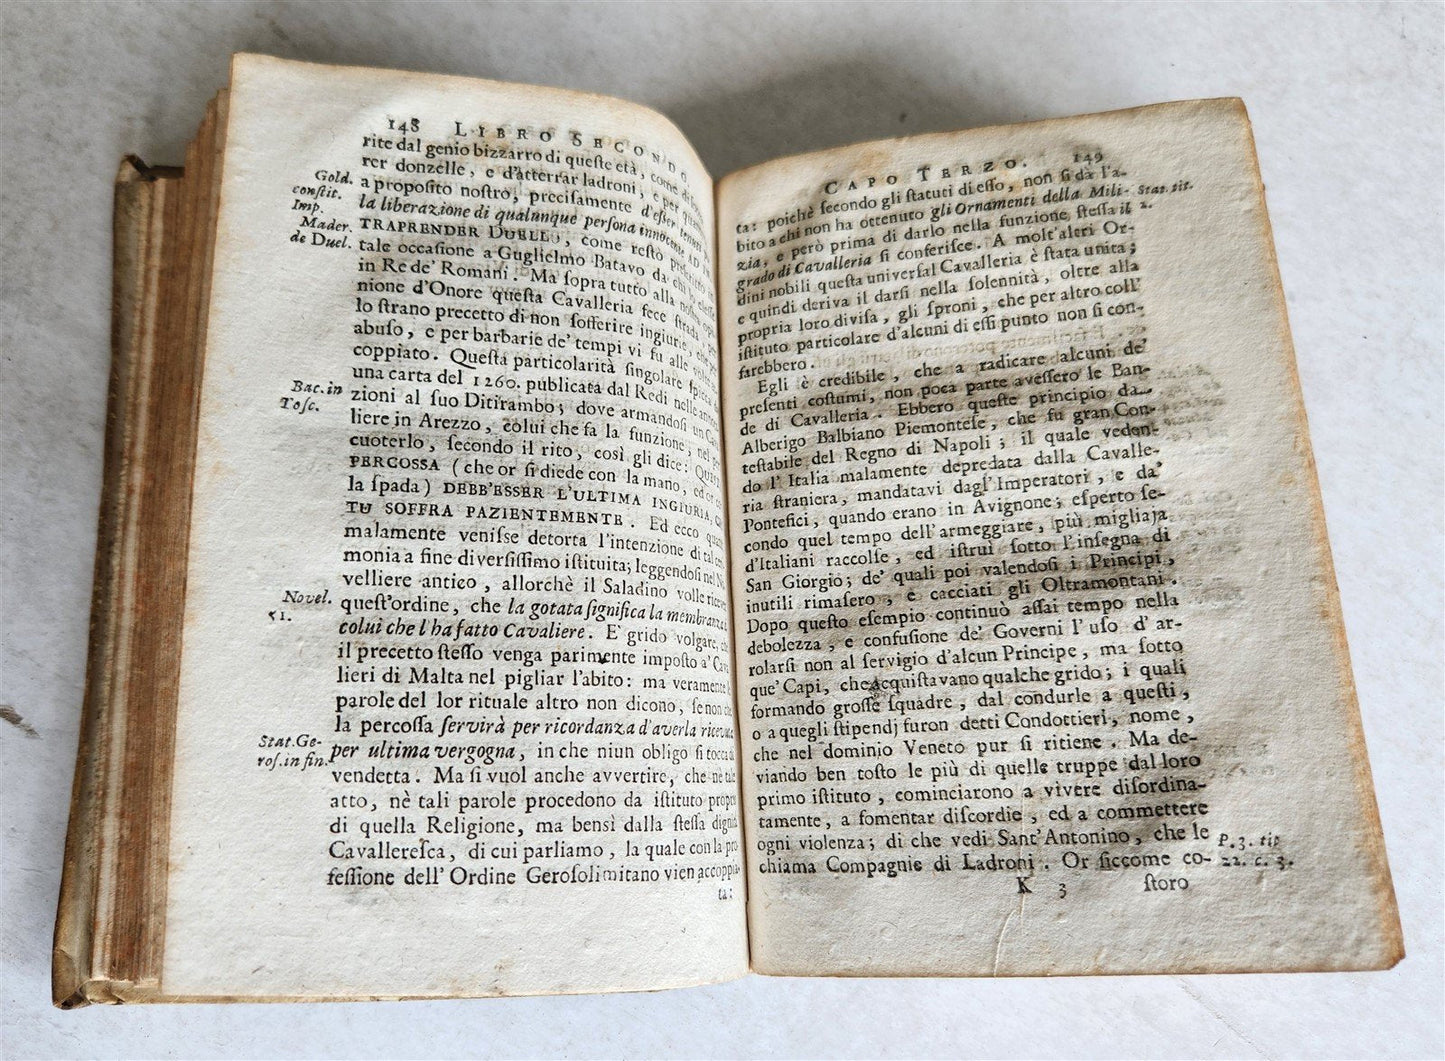 148 LIBRO SECONDO
rite dal genio bizzarro di queſte età, come di
rer donzelle, e d'atterrar ladroni, e per quanto
a propoſito noſtro, preciſamente d'eſſer tenuti
Gold. conſtit. Imp.
la liberazione di qualunque perſona innocente AD IN-
TRAPRENDER DUELLO, come reſtò
Mader. de Duel.
tale occaſione a Guglielmo Batavo da chi l'eleſſe
in Re de' Romani. Ma ſopra tutto alla noſtra opi-
nione d'Onore queſta Cavalleria fece ſtrada
lo ſtrano precetto di non ſofferire ingiurie, che per
abuſo, e per barbarie de' tempi vi fu alle volte
coppiato. Queſta particolarità ſingolare ſpicca da
una carta del 1260. publicata dal Redi nelle annota-
Bac. in Toſc.
zioni al ſuo Ditirambo; dove armandoſi un Cava-
liere in Arezzo, colui che fa la funzione, nel per-
cuoterlo, ſecondo il rito, così gli dice: QUESTA
PERCOSSA (che or ſi diede con la mano, ed or con
la ſpada) DEBB'ESSER L'ULTIMA INGIURIA, CHE
TU SOFFRA PAZIENTEMENTE. Ed ecco quanto
malamente veniſſe detorta l'intenzione di tal ceri-
monia a fine diverſiſſimo iſtituita; leggendoſi nel No-
velliere antico, allorchè il Saladino volle ricever
Novel. 51.
queſt'ordine, che la gotata ſignifica la membranza di
colui che l'ha fatto Cavaliere. E' grido volgare, che
il precetto ſteſſo venga parimente impoſto a' Cava-
lieri di Malta nel pigliar l'abito: ma veramente le
parole del lor rituale altro non dicono, ſe non che
la percoſſa ſervirà per ricordanza d'averla ricevuta
Stat. Ge- roſ. in fin.
per ultima vergogna, in che niun obligo ſi tocca di
vendetta. Ma ſi vuol anche avvertire, che nè tale
atto, nè tali parole procedono da iſtituto proprio
di quella Religione, ma bensì dalla ſteſſa dignità
Cavallereſca, di cui parliamo, la quale con la pro-
feſſione dell'Ordine Geroſolimitano vien accoppia-
ta:
CAPO TERZO. 149
ta: poichè ſecondo gli ſtatuti di eſſo, non ſi dà l'a-
bito a chi non ha ottenuto gli Ornamenti della Mili-
Stat. tit. 2.
zia, e però prima di darlo nella funzione ſteſſa il
grado di Cavalleria ſi conferiſce. A molt'altri Or-
dini nobili queſta univerſal Cavalleria è ſtata unita;
e quindi deriva il darſi nella ſolennità, oltre alla
propria loro diviſa, gli ſproni, che per altro coll'
iſtituto particolare d'alcuni di eſſi punto non ſi con-
farebbero.
Egli è credibile, che a radicare alcuni de'
preſenti coſtumi, non poca parte aveſſero le Ban-
de di Cavalleria. Ebbero queſte principio da
Alberigo Balbiano Piemonteſe, che fu gran Con-
teſtabile del Regno di Napoli; il quale veden-
do l'Italia malamente depredata dalla Cavalle-
ria ſtraniera, mandatavi dagl'Imperatori, e da'
Pontefici, quando erano in Avignone; eſperto ſe-
condo quel tempo dell'armeggiare, più migliaja
d'Italiani raccolſe, ed iſtruì ſotto l'inſegna di
San Giorgio; de' quali poi valendoſi i Principi,
inutili rimaſero, e cacciati gli Oltramontani.
Dopo queſto eſempio continuò aſſai tempo nella
debolezza, e confuſione de' Governi l'uſo d'ar-
rolarſi non al ſervigio d'alcun Principe, ma ſotto
que' Capi, che acquiſtavano qualche grido; i quali
formando groſſe ſquadre, dal condurle a queſti,
o a quegli ſtipendj furon detti Condottieri, nome,
che nel dominio Veneto pur ſi ritiene. Ma de-
viando ben toſto le più di quelle truppe dal loro
primo iſtituto, cominciarono a vivere diſordina-
tamente, a fomentar diſcordie, ed a commettere
ogni violenza; di che vedi Sant'Antonino, che le
P. 3. tit. 22. c. 3.
chiama Compagnie di Ladroni. Or ſiccome co-
K 3 ſtoro